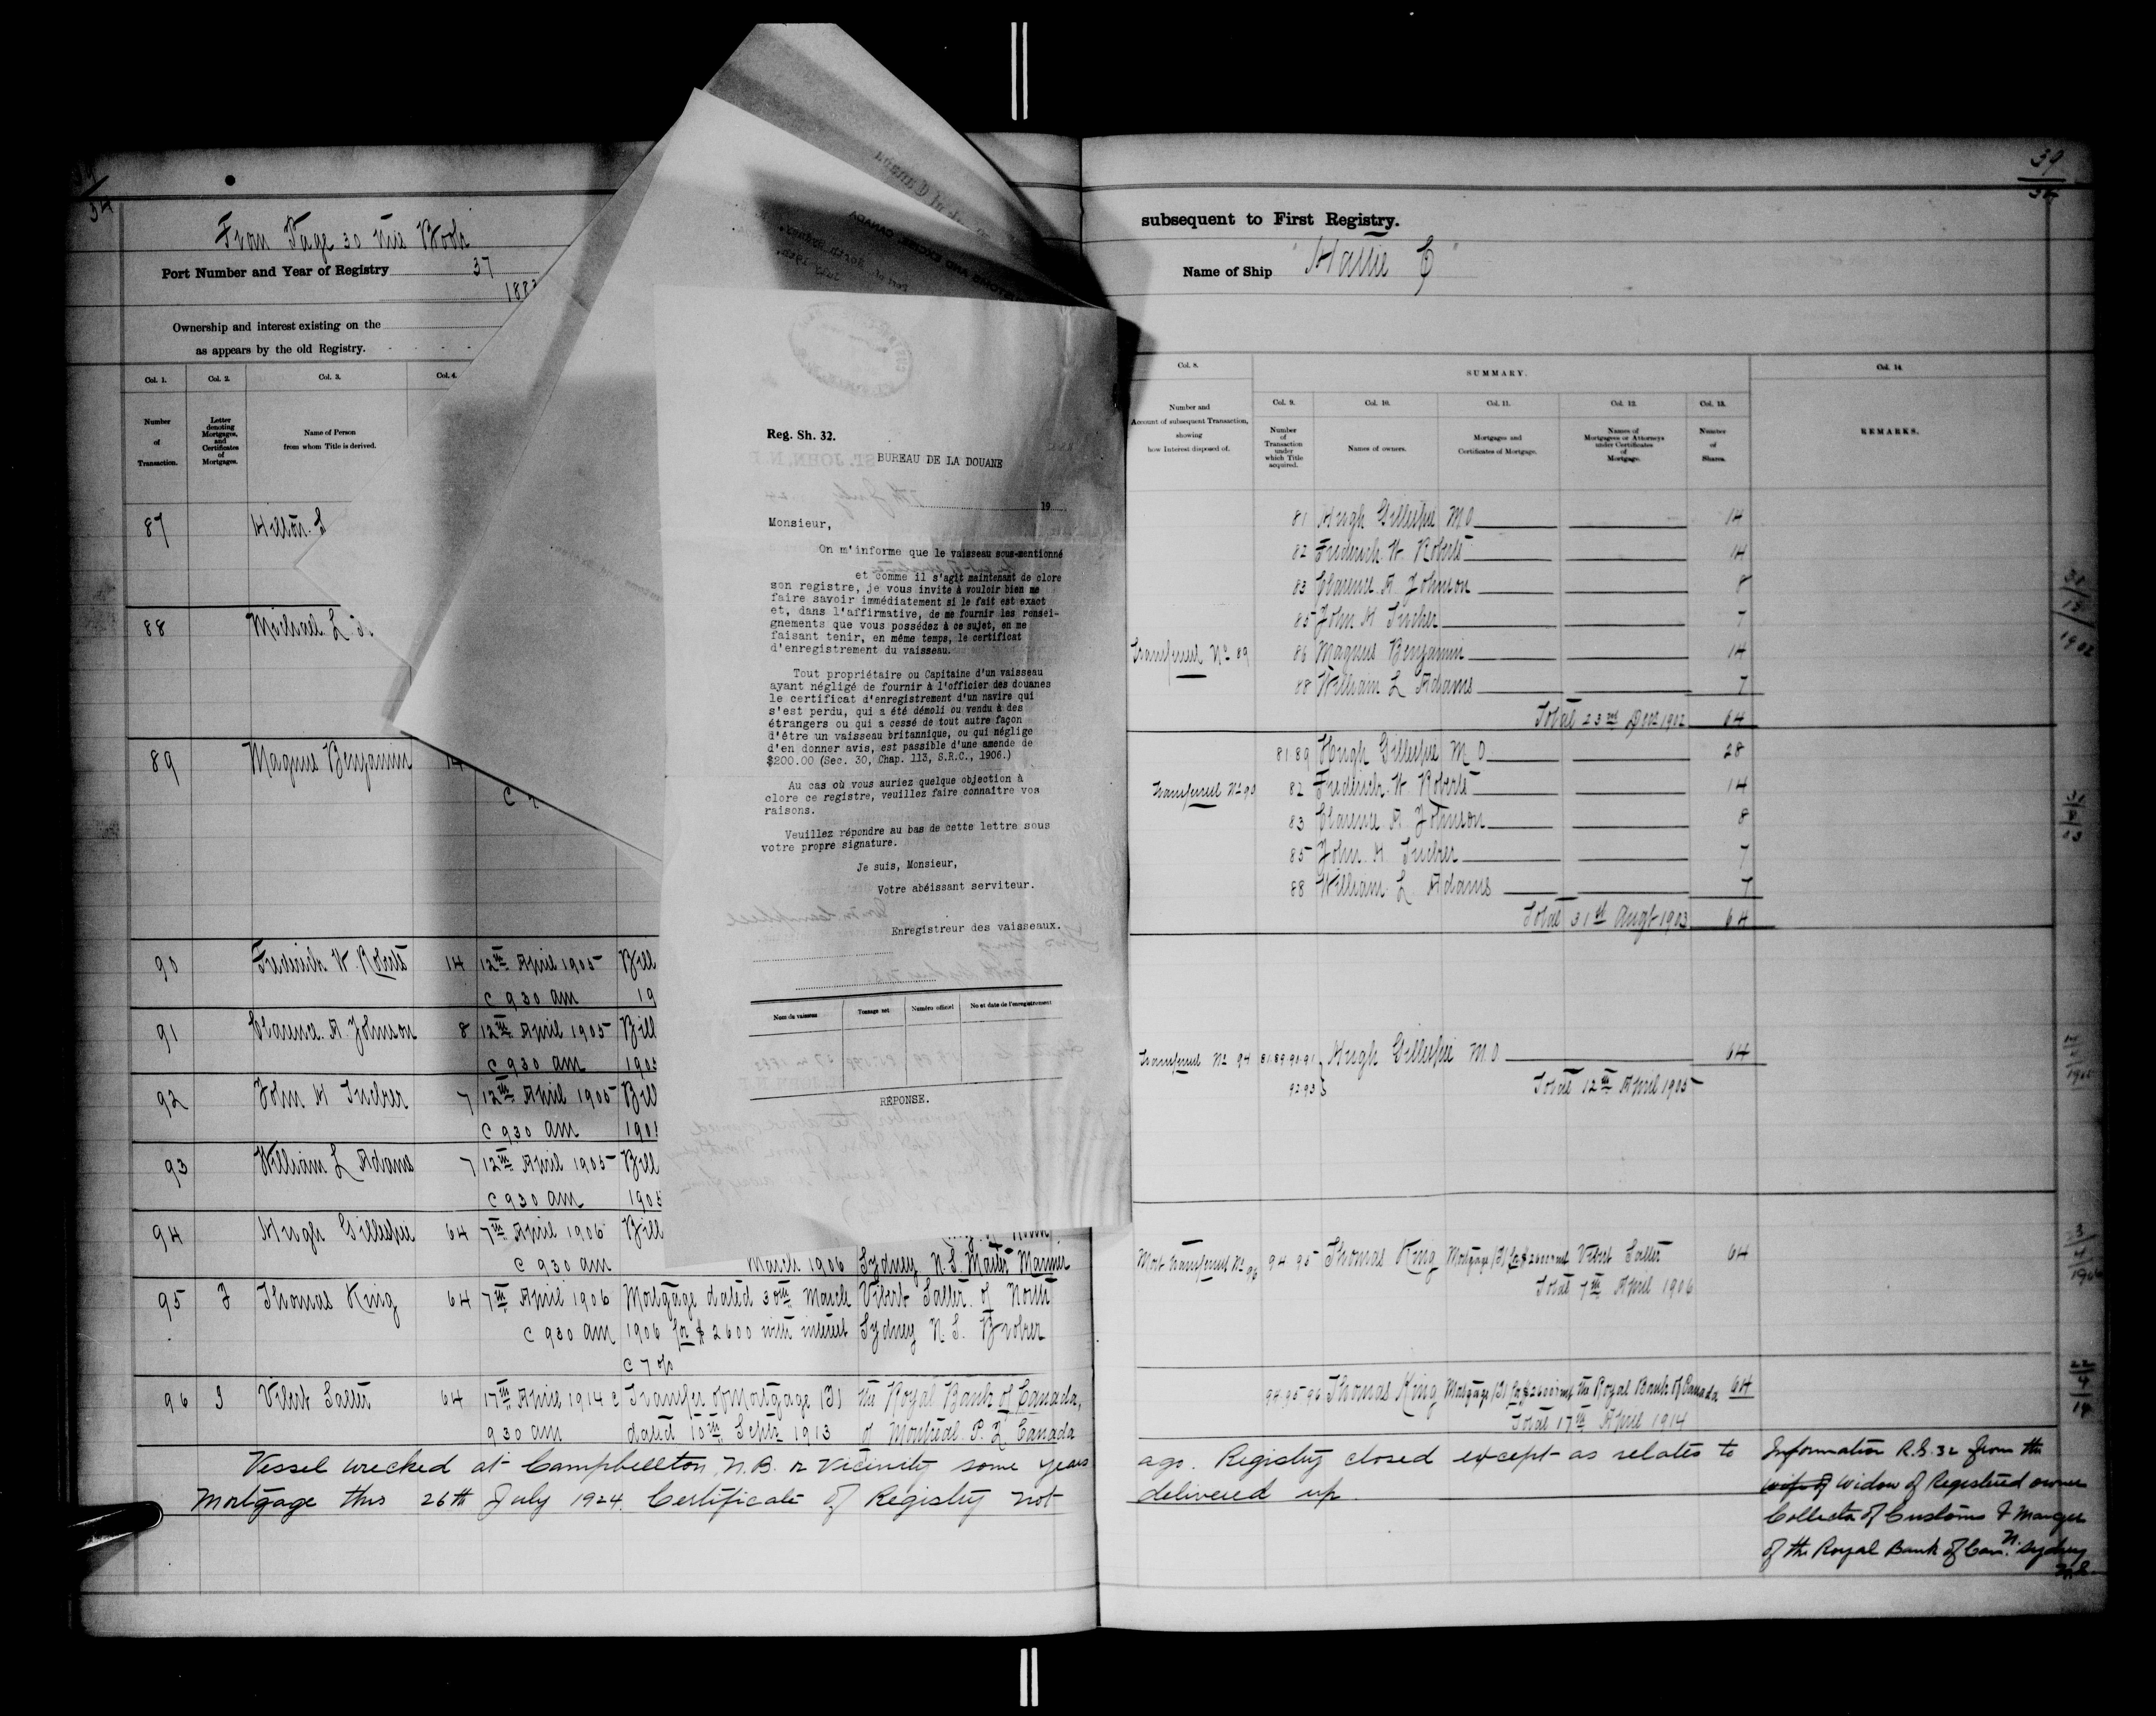 From Page 30 this Book
Port Number and Year of Registry 37
Ownership and interest existing on the
as appears by the old Registry.
Col. 1.
Col. 2.
Col. 3.
Col. 4.
Number
of
Transaction.
Letter
denoting
Mortgages,
and
Certificates
of
Mortgages.
Name of Person
from whom Title is derived.
87
88
89 Magnus Benjamin 14
90 Frederick W. Roberts 14 12th April 1905 Bill
@ 9 30 am 19
91 Clarence A. Johnson 8 12th April 1905 Bill
@ 9 30 am
92 John H Tucker 7 12th April 1905 Bill
@ 9 30 am
93 William L Adams 7 12th April 1905 Bill
@ 9 30 am 1905
94 Hugh Gillespie 64 7th April 1906 Bill
@ 9 30 am March 1906 Sydney N.S. Master Mariner
95 Thomas King 64 7th April 1906 Mortgage dated 30th March Vibert Salter of North
@ 9 30 am 1906 for $ 2600 with interest Sydney N.S. Broker
@ 7 o/o
96 Vibert Salter 64 17th April 1914 @ Transfer of Mortgage the Royal Bank of Canada,
9 30 am dated 10th Septr 1913 of Montreal P.Q. Canada
Vessel wrecked at Campbellton, N.B. or vicinity some years
Mortgage this 26th July 1924. Certificate of Registry not
Reg. Sh. 32.
BUREAU DE LA DOUANE
19
Monsieur,
On m'informe que le vaisseau sous-mentionné
et comme il s'agit maintenant de clore
son registre, je vous invite à vouloir bien me
faire savoir immédiatement si le fait est exact
et, dans l'affirmative, de me fournir les rensei-
gnements que vous possédez à ce sujet, en me
faisant tenir, en même temps, le certificat
d'enregistrement du vaisseau.
Tout propriétaire ou Capitaine d'un vaisseau
ayant négligé de fournir à l'officier des douanes
le certificat d'enregistrement d'un navire qui
s'est perdu, qui a été démoli ou vendu à des
étrangers ou qui a cessé de tout autre façon
d'être un vaisseau britannique, ou qui néglige
d'en donner avis, est passible d'une amende de
$200.00 (Sec. 30, Chap. 113, S.R.C., 1906.)
Au cas où vous auriez quelque objection à
clore ce registre, veuillez faire connaître vos
raisons.
Veuillez répondre au bas de cette lettre sous
votre propre signature.
Je suis, Monsieur,
Votre abéissant serviteur.
Enregistreur des vaisseaux.
Nom du vaisseau
Tonnage net
Numéro officiel
No et date de l'enregistrement
RÉPONSE.
39
34
subsequent to First Registry.
Name of Ship "Hattie E"
Col. 8.
SUMMARY.
Col. 14.
Number and
Account of subsequent Transaction,
showing
how Interest disposed of.
Col. 9.
Number
of
Transaction
under
which Title
acquired.
Col. 10.
Names of owners.
Col. 11.
Mortgages and
Certificates of Mortgage.
Col. 12.
Names of
Mortgagees or Attorneys
under Certificates
of
Mortgage.
Col. 13.
Number
of
Shares.
REMARKS.
81 Hugh Gillespie M.O 14
82 Frederick W. Roberts 14
83 Clarence A. Johnson 8
85 John H Tucker 7
Transferred No 89 86 Magnus Benjamin 14
88 William L Adams 7
Total 23rd Decr 1902 64
81 89 Hugh Gillespie M O 28
Transferred No 90 82 Frederick W. Roberts 14
83 Clarence A. Johnson 8
85 John H. Tucker 7
88 William L Adams 7
Total 31st Augt 1903 64
Transferred No 94 81.89.90.91 Hugh Gillespie M.O 64
92 93 Total 12th April 1905
Mort transferred No 96 94 95 Thomas King Mortgage Vibert Salter 64
Total 7th April 1906
94.95.96 Thomas King Mortgage the Royal Bank of Canada 64
Total 17th April 1914
ago. Registry closed except as relates to
delivered up.
Information R.S. 32 from the
wife of Widow of Registered owner
Collector of Customs & Manager
of the Royal Bank of Can. N. Sydney
N.S.